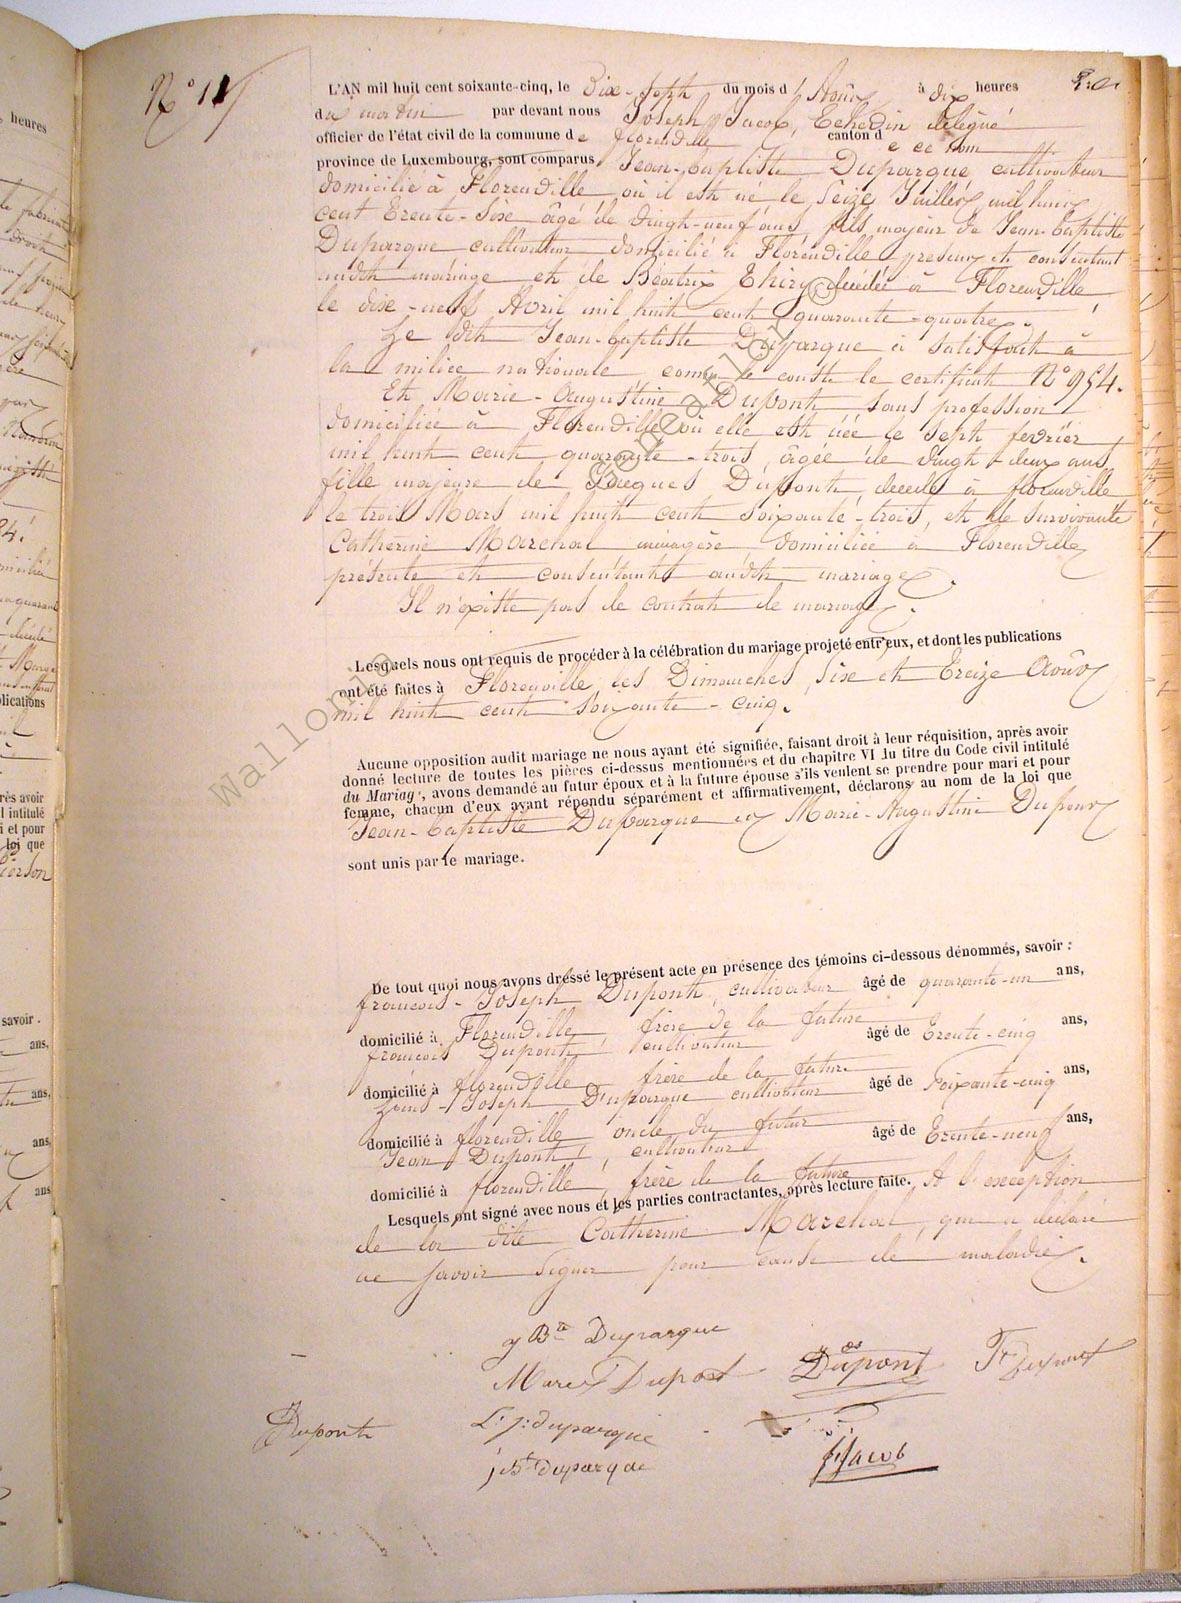 N° 11
L'AN mil huit cent soixante-cinq, le Dix-Sept du mois d' Août à dix heures
du matin par devant nous Joseph Jacob, Echevin délégué
officier de l'état civil de la commune de florenville canton de ce nom
province de Luxembourg, sont comparus Jean-baptiste Duparque cultivateur
domicilié à Florenville où il est né le Seize Juillet mil huit
cent Trente-Six âgé de vingt-neuf ans, fils majeur de Jean-baptiste
Duparque cultivateur domicilié à Florenville présent et consentant
audit mariage et de Béatrix Thiry décédée à Florenville
le dix-neuf Avril mil huit cent quarante-quatre.
Le dit Jean-baptiste Duparque a satisfait à
la milice nationale, comme le conste le certificat N° 954.
Et Marie-Augustine Dupont sans profession
domiciliée à Florenville où elle est née le Sept fevrier
mil huit cent quarante-trois, âgée de vingt-deux ans,
fille majeure de Jacques Dupont, décédé à florenville
le trois Mars mil huit cent soixante-trois, et de survivante
Catherine Marchal ménagère domiciliée à Florenville
présente et consentante audit mariage.
Il n'existe pas de contrat de mariage.
Lesquels nous ont requis de procéder à la célébration du mariage projeté entr'eux, et dont les publications
ont été faites à Florenville, les Dimanches Six et Treize Août
mil huit cent soixante-cinq.
Aucune opposition audit mariage ne nous ayant été signifiée, faisant droit à leur réquisition, après avoir
donné lecture de toutes les pièces ci-dessus mentionnées et du chapitre VI du titre du Code civil intitulé
du Mariage, avons demandé au futur époux et à la future épouse s'ils veulent se prendre pour mari et pour
femme, chacun d'eux ayant répondu séparément et affirmativement, déclarons au nom de la loi que
Jean-baptiste Duparque et Marie-Augustine Dupont
sont unis par le mariage.
De tout quoi nous avons dressé le présent acte en présence des témoins ci-dessous dénommés, savoir :
francois-Joseph Dupont, cultivateur âgé de quarante-un ans,
domicilié à Florenville, frère de la future
francois Dupont, cultivateur âgé de Trente-cinq ans,
domicilié à florenville, frère de la future
Louis-Joseph Duparque cultivateur âgé de soixante-cinq ans,
domicilié à florenville oncle du futur
Jean Dupont, cultivateur âgé de Trente-neuf ans,
domicilié à florenville, frère de la future
Lesquels ont signé avec nous et les parties contractantes, après lecture faite. A l'exception
de la dite Catherine Marchal, qui a déclaré
ne savoir signer pour cause de maladie.
J Bte Duparque
Marie Dupont Dupont Fr Dupont
JDupont L. J. duparque
j Bt Duparque J. Jacob
wallonia
©Geneanor
heures
savoir.
ans,